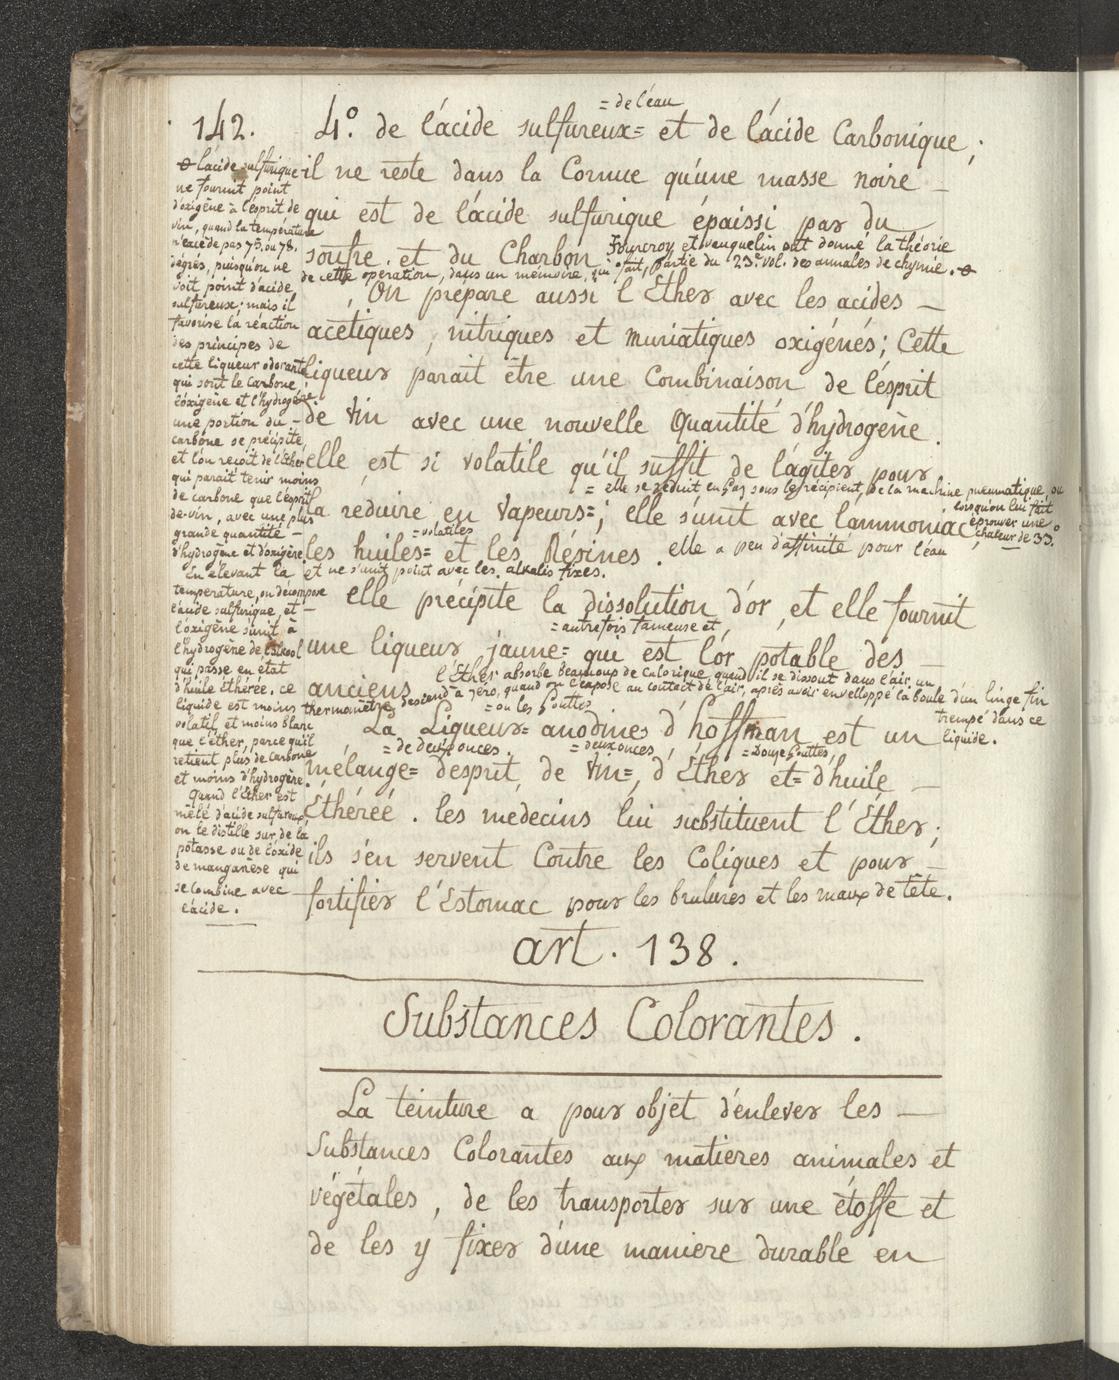 142.
4º. de l'acide sulfureux= et de l'acide Carbonique;
= de l'eau
il ne reste dans la Cornue qu'une masse noire
qui est de l'acide sulfurique épaissi par du
soufre et du Charbon. Fourcroy et vauquelin ont donné la théorie
de cette opération, dans un mémoire, qui fait partie du 23e vol. des annales de chymie. ⊖
On prépare aussi l'Ether avec les acides
acétiques, nitriques et muriatiques oxigénés; Cette
liqueur parait être une Combinaison de l'ésprit
de vin avec une nouvelle Quantité d'hydrogène.
elle est si volatile qu'il suffit de l'agiter pour
= elle se réduit en gaz sous le récipient, de la machine pneumatique, ou
lorsqu'on lui fait
éprouver une
chaleur de 33.
la réduire en vapeurs=; elle s'unit avec l'ammoniac
= volatiles
les huiles= et les Résines. elle a peu d'affinité pour l'eau
et ne s'unit point avec les alkalis fixes.
elle précipite la dissolution d'or, et elle fournit
= autrefois fameuse et
une liqueur jaune= qui est l'or potable des
anciens l'Ether absorbe beaucoup de calorique quand il se dissout dans l'air, un
thermomètre descend à zéro, quand on l'expose au contact de l'air, après avoir enveloppé la boule d'un linge fin
trempé dans ce
liquide.
= ou les gouttes
La Liqueur= anodines d'hoffman est un
= de deux onces. = deux onces, = Douze gouttes,
mélange= d'esprit de vin=, d'Éther et= d'huile
Éthéréé. les medecins lui substituent l'Éther;
ils s'en servent Contre les Coliques et pour
fortifier l'Estomac pour les brulures et les maux de tête.
⊖ l'acide sulfurique
ne fournit point
d'oxigène à l'esprit de
vin, quand la température
n'excède pas 75. ou 78.
dégrés, puisqu'on ne
voit point d'acide
sulfureux; mais il
favorise la réaction
des principes de
cette liqueur odorante
qui sont le carbone
l'oxigène et l'hydrogène.
une portion du
carbone se précipite,
et l'on reçoit de l'Ether
qui parait tenir moins
de carbone que l'esprit
de-vin, avec une plus
grande quantité
d'hydrogène et d'oxigène
En élevant la
temperature, on décompose
l'acide sulfurique, et
l'oxigène s'unit à
l'hydrogène de l'alcool
qui passe en état
d'huile éthérée. ce
liquide est moins
volatil et moins blanc
que l'éther, parce qu'il
retient plus de carbone
et moins d'hydrogène.
Quand l'Ether est
mêlé d'acide sulfureux,
on le distille sur de la
potasse ou de l'oxide
de manganèse qui
se combine avec
l'acide.
art. 138.
Substances Colorantes.
La teinture a pour objet d'enlever les
Substances Colorantes aux matieres animales et
végétales, de les transporter sur une étoffe et
de les y fixer d'une maniere durable en